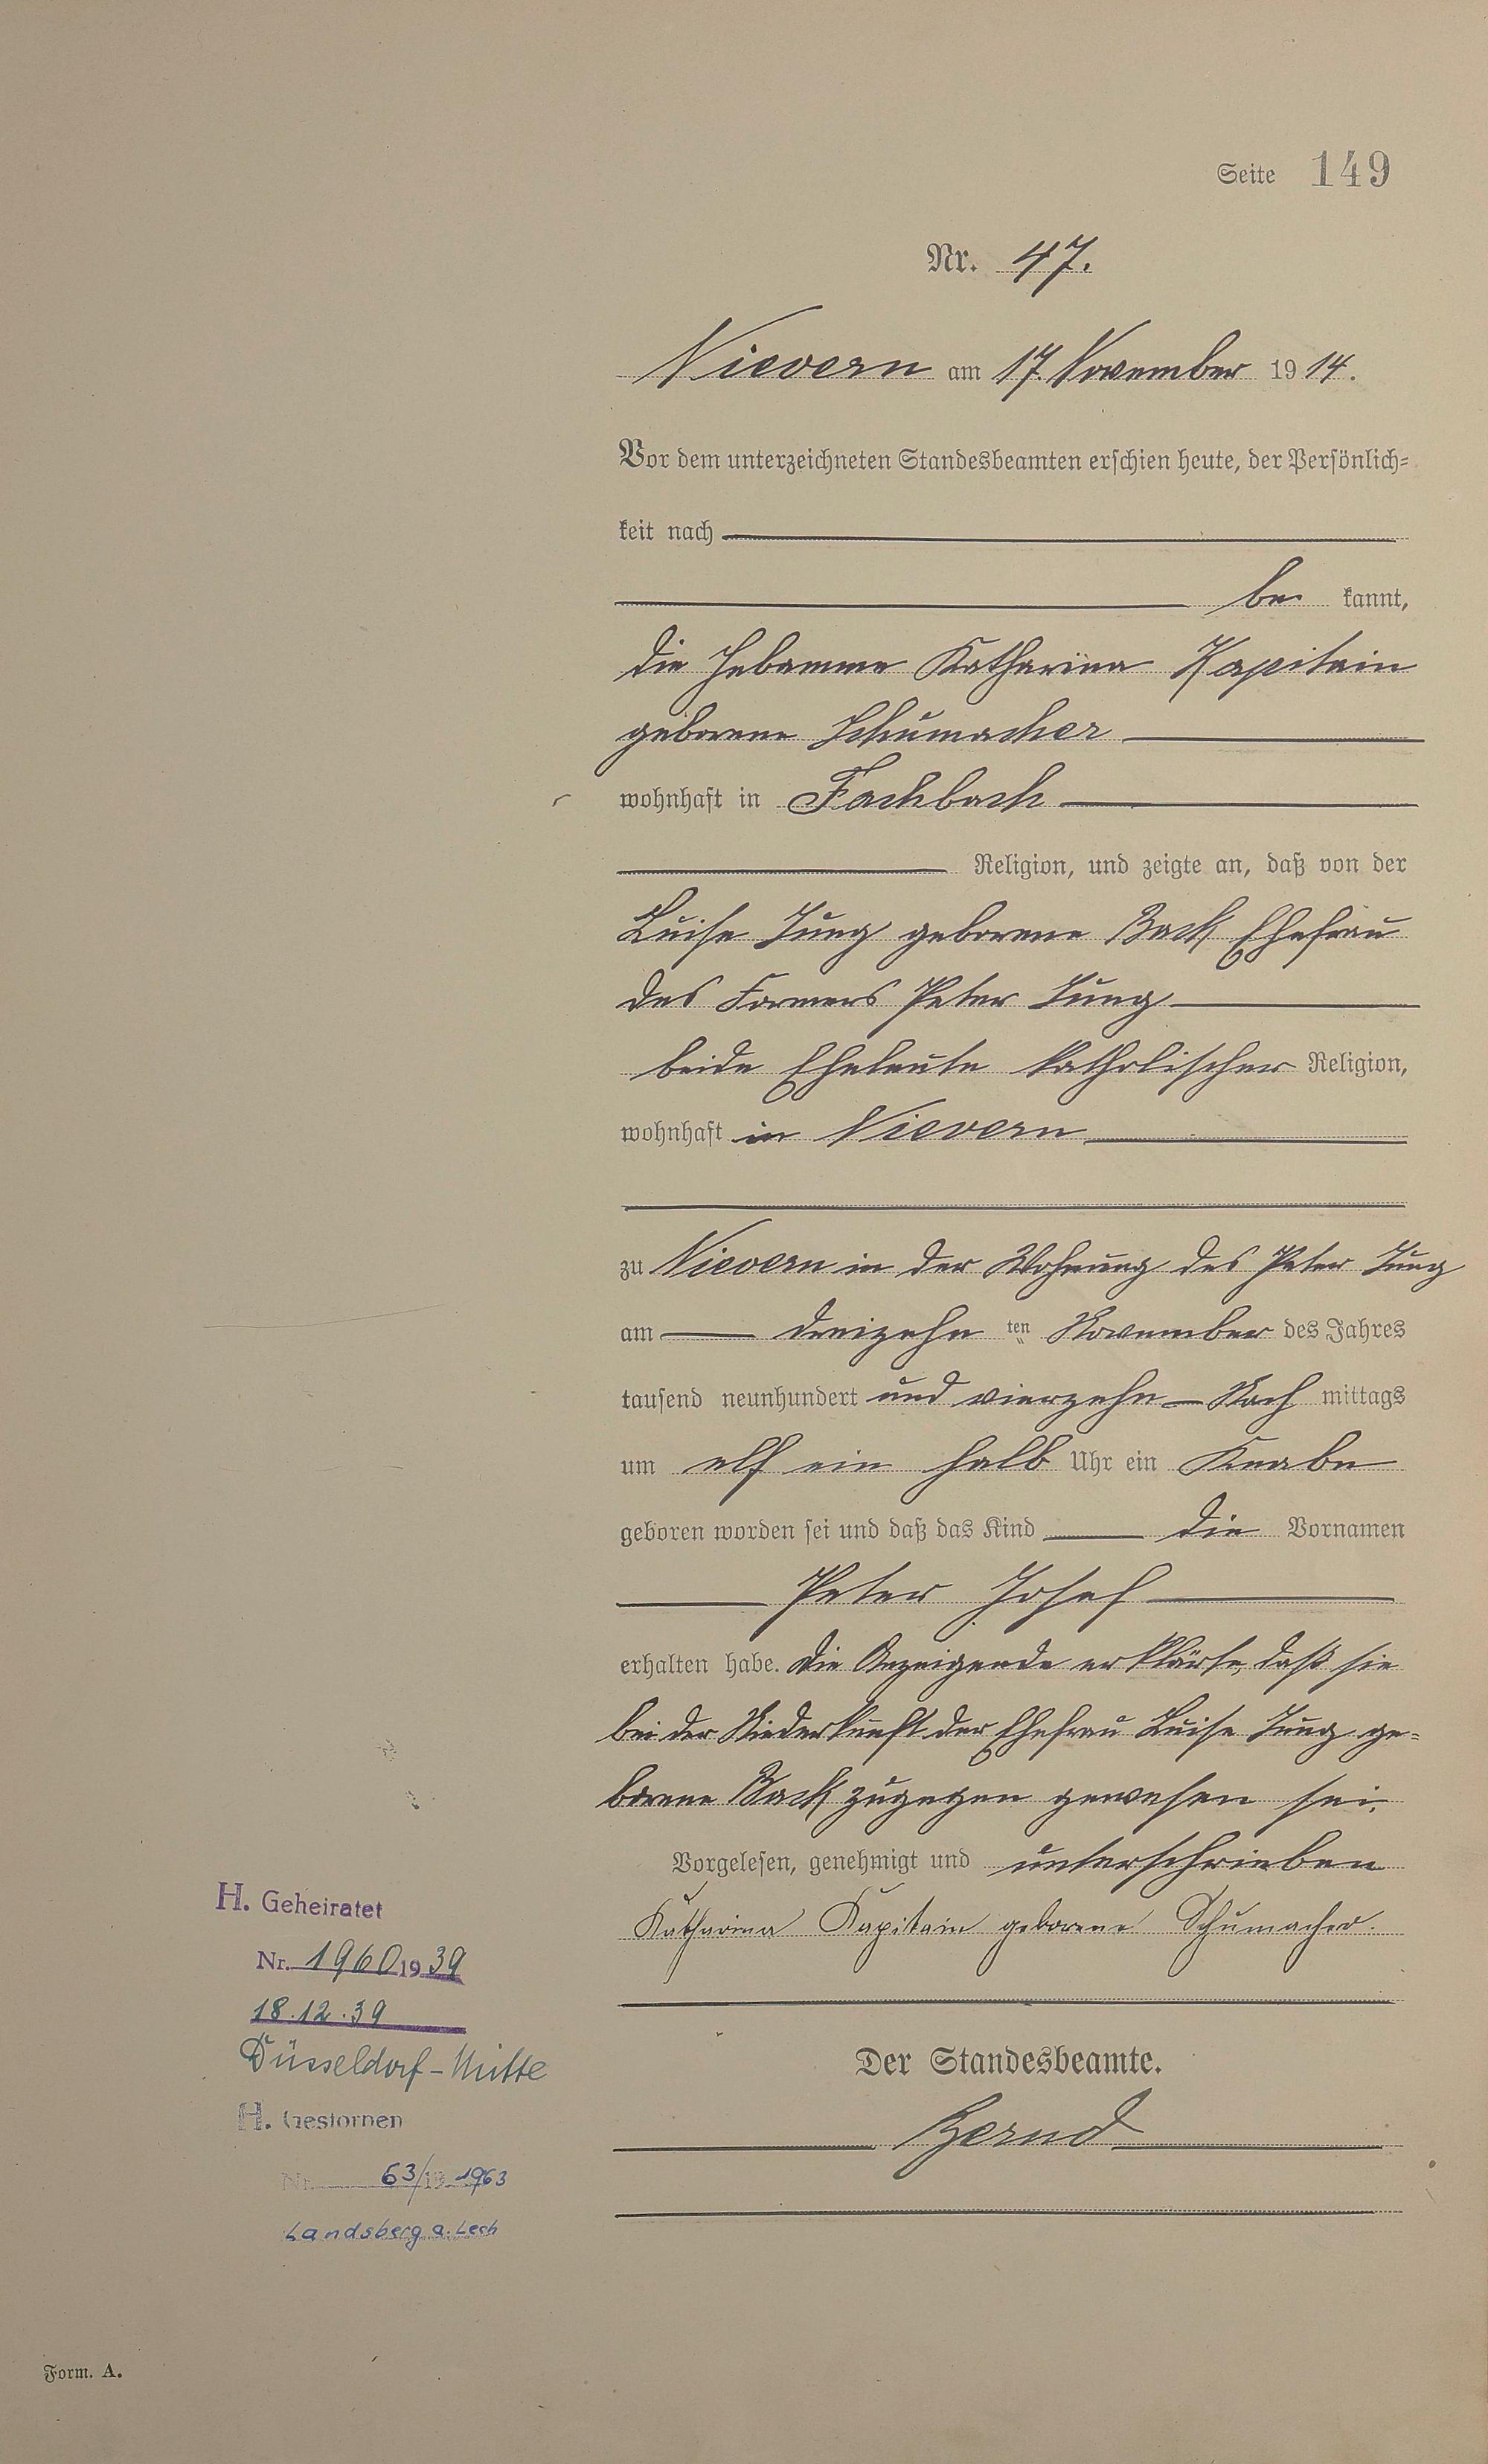 Seite 149
Nr. 47.
Nievern am 17. November 1914.
Vor dem unterzeichneten Standesbeamten erschien heute, der Persönlich-
keit nach
be kannt,
die Hebamme Katharina Kapitain
geborene Schumacher
wohnhaft in Fachbach
Religion, und zeigte an, daß von der
Luise Jung geborene Back Ehefrau
des Formers Peter Jung
beide Eheleute katholischer Religion,
wohnhaft in Nievern
zu Nievern in der Wohnung des Peter Jung
am dreizehn ten November des Jahres
tausend neunhundert und vierzehn Nach mittags
um elf ein halb Uhr ein Knabe
geboren worden sei und daß das Kind die Vornamen
Peter Josef
erhalten habe. Die Anzeigende erklärte, daß sie
bei der Niederkunft der Ehefrau Luise Jung ge-
borene Back zugegen gewesen sei.
Vorgelesen, genehmigt und unterschrieben
Katharina Kapitain geborene Schumacher.
Der Standesbeamte.
H. Geheiratet
Nr. 1960 1939
18.12.39
Düsseldorf-Mitte
H. Gestorben
Nr. 63/19 1963
Landsberg a. Lech
Form. A.